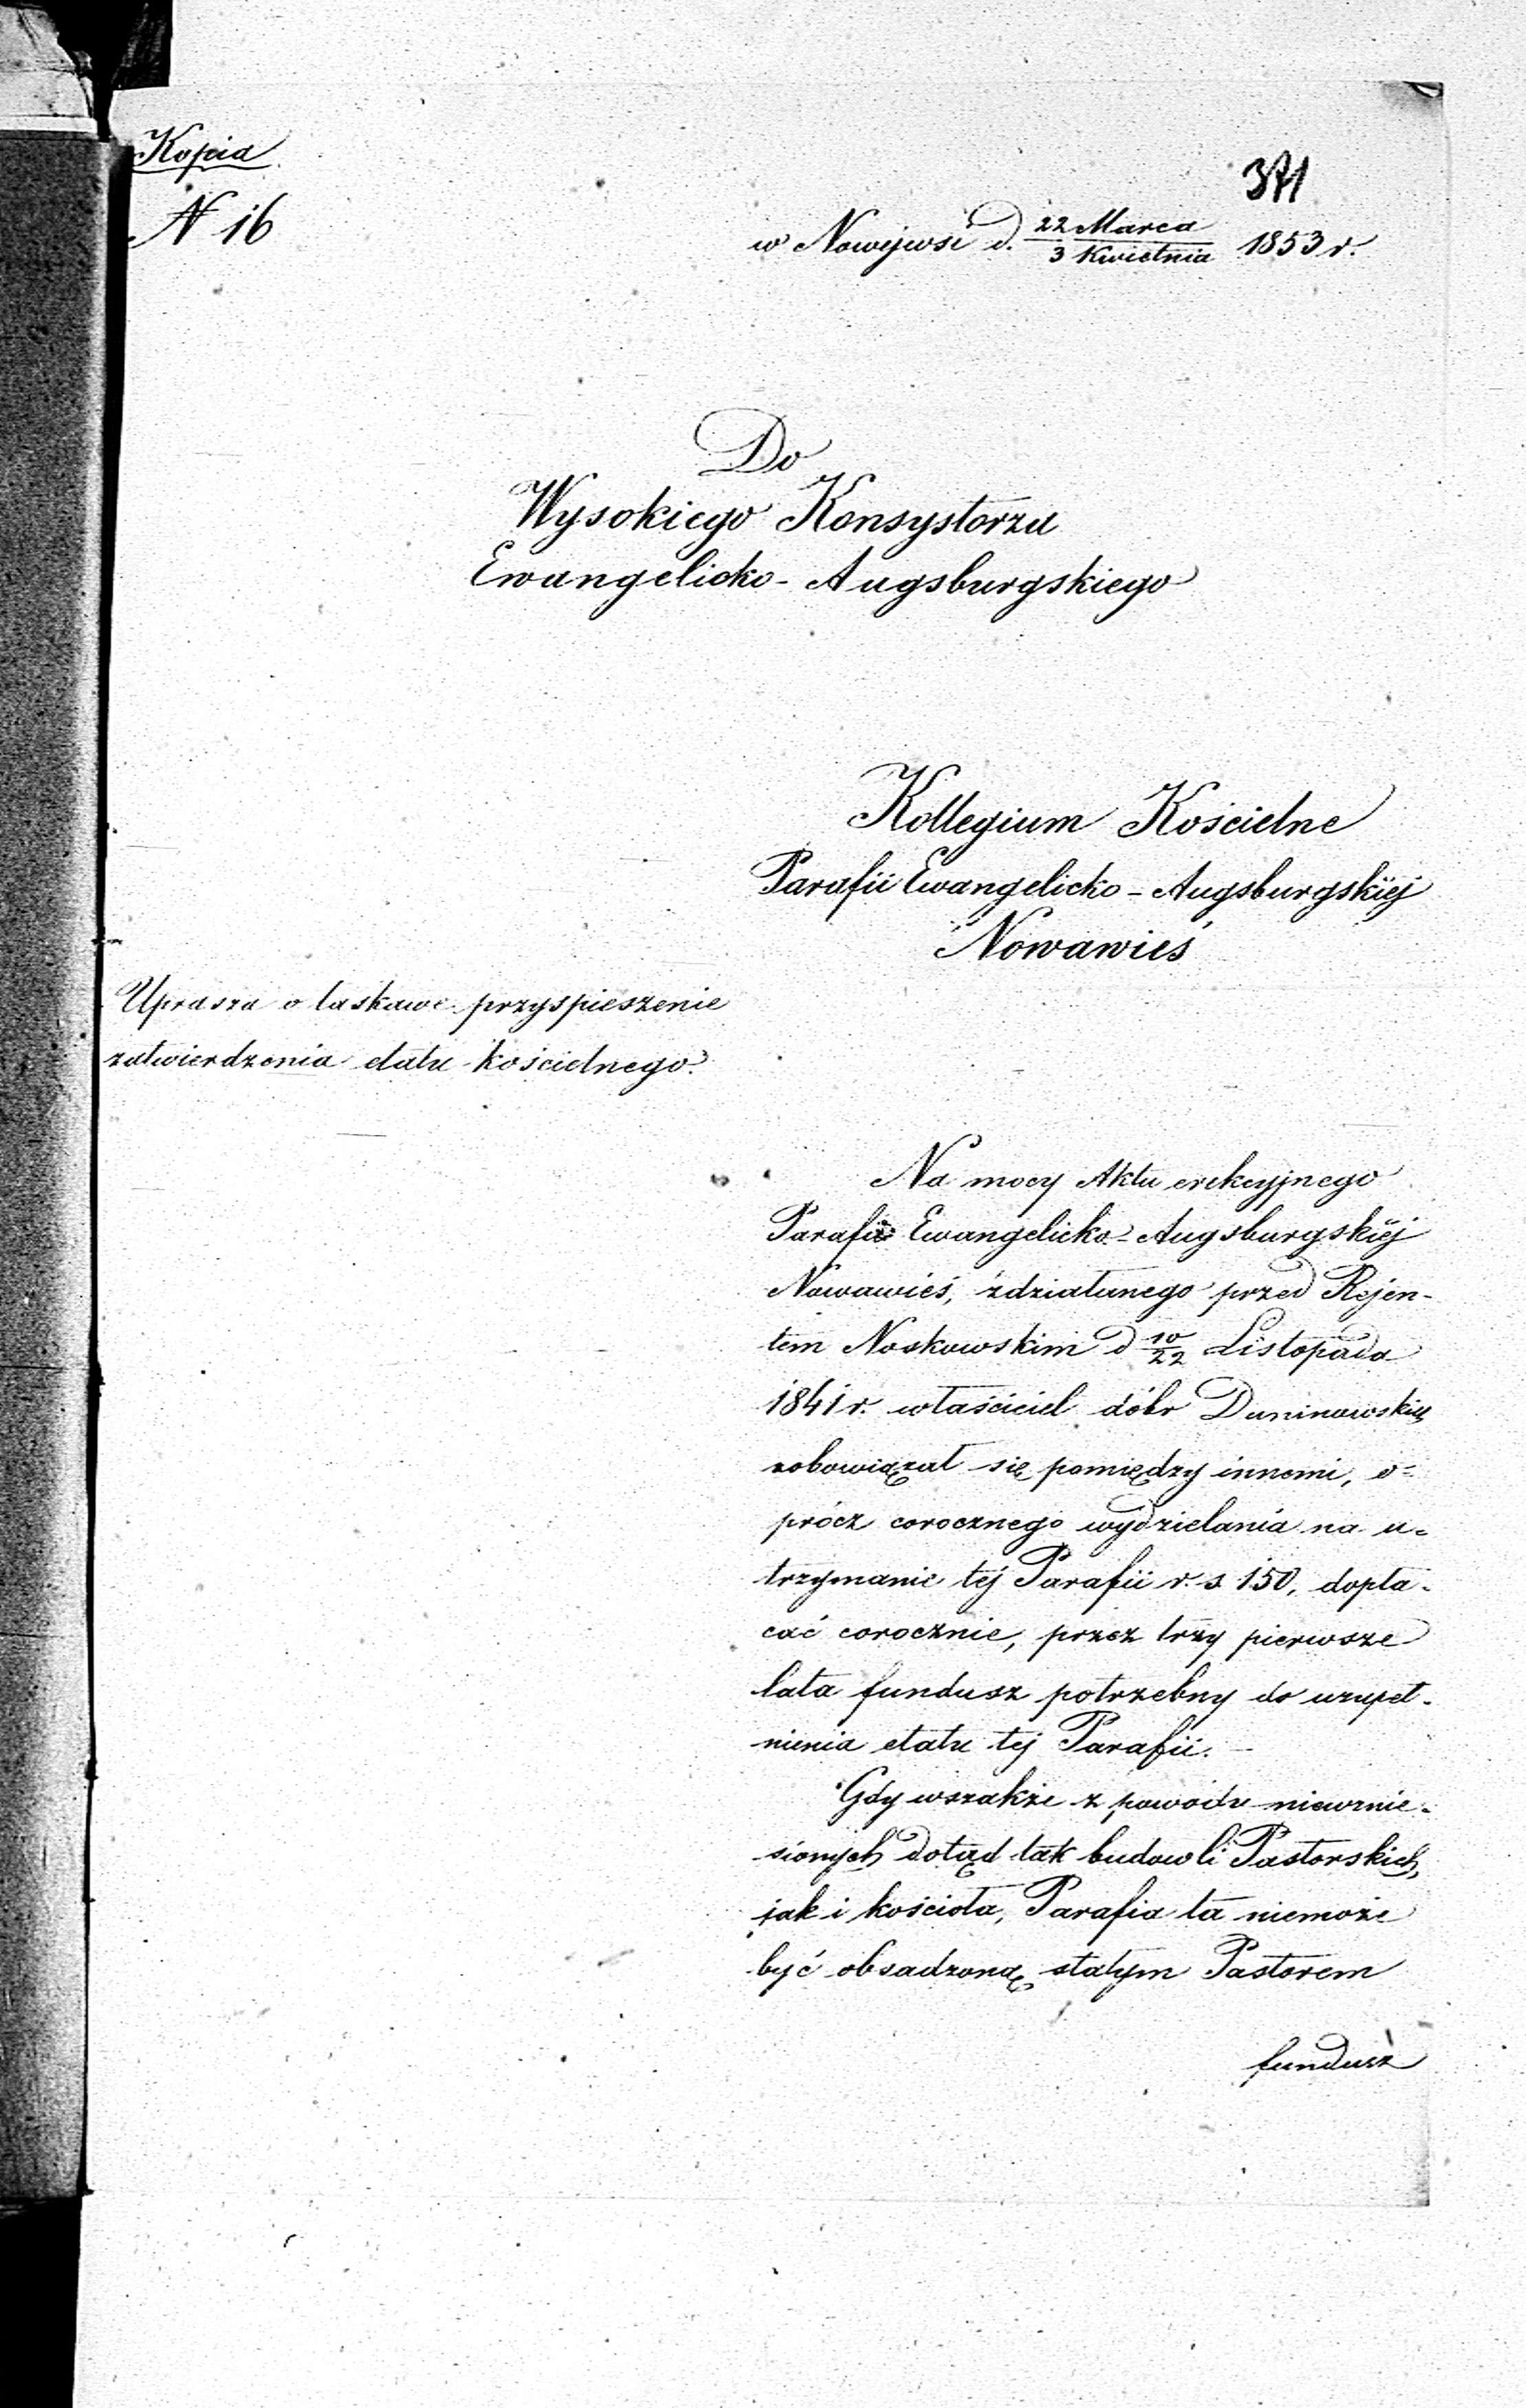 Kopia
N 16
371
w Nowejwsi d. 22 Marca / 3 Kwietnia 1853 r.
Do
Wysokiego Konsystorza
Ewangelicko-Augsburgskiego
Kollegium Kościelne
Parafii Ewangelicko-Augsburgskiéj
Nowawieś
Uprasza o łaskawe przyspieszenie
zatwierdzenia etatu kościelnego.
Na mocy Aktu erekcyjnego
Parafii Ewangelicko-Augsburgskiéj
Nowawieś, zdziałanego przed Rejen-
tem Noskowskim d 10/22 Listopada
1841 r. właściciel dóbr Duninowskich
zobowiązał się pomiędzy innemi, o-
prócz corocznego wydzielania na u-
trzymanie téj Parafii r. s. 150, dopła-
cać corocznie, przez trzy pierwsze
lata fundusz potrzebny do uzupeł-
nienia etatu tej Parafii. —
Gdy wszakże z powodu niewznie-
sionych dotąd tak budowli Pastorskich,
jak i kościoła, Parafia ta niemoże
być obsadzoną stałym Pastorem
fundusz